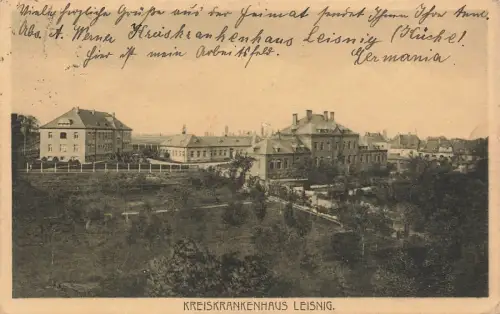 Viele herzliche Grüße aus der Heimat sendet Ihnen Ihre tem.
Abs. A. Werner Kreiskrankenhaus Leisnig (Küche)
Hier ist mein Arbeitsfeld. Germania.
KREISKRANKENHAUS LEISNIG.